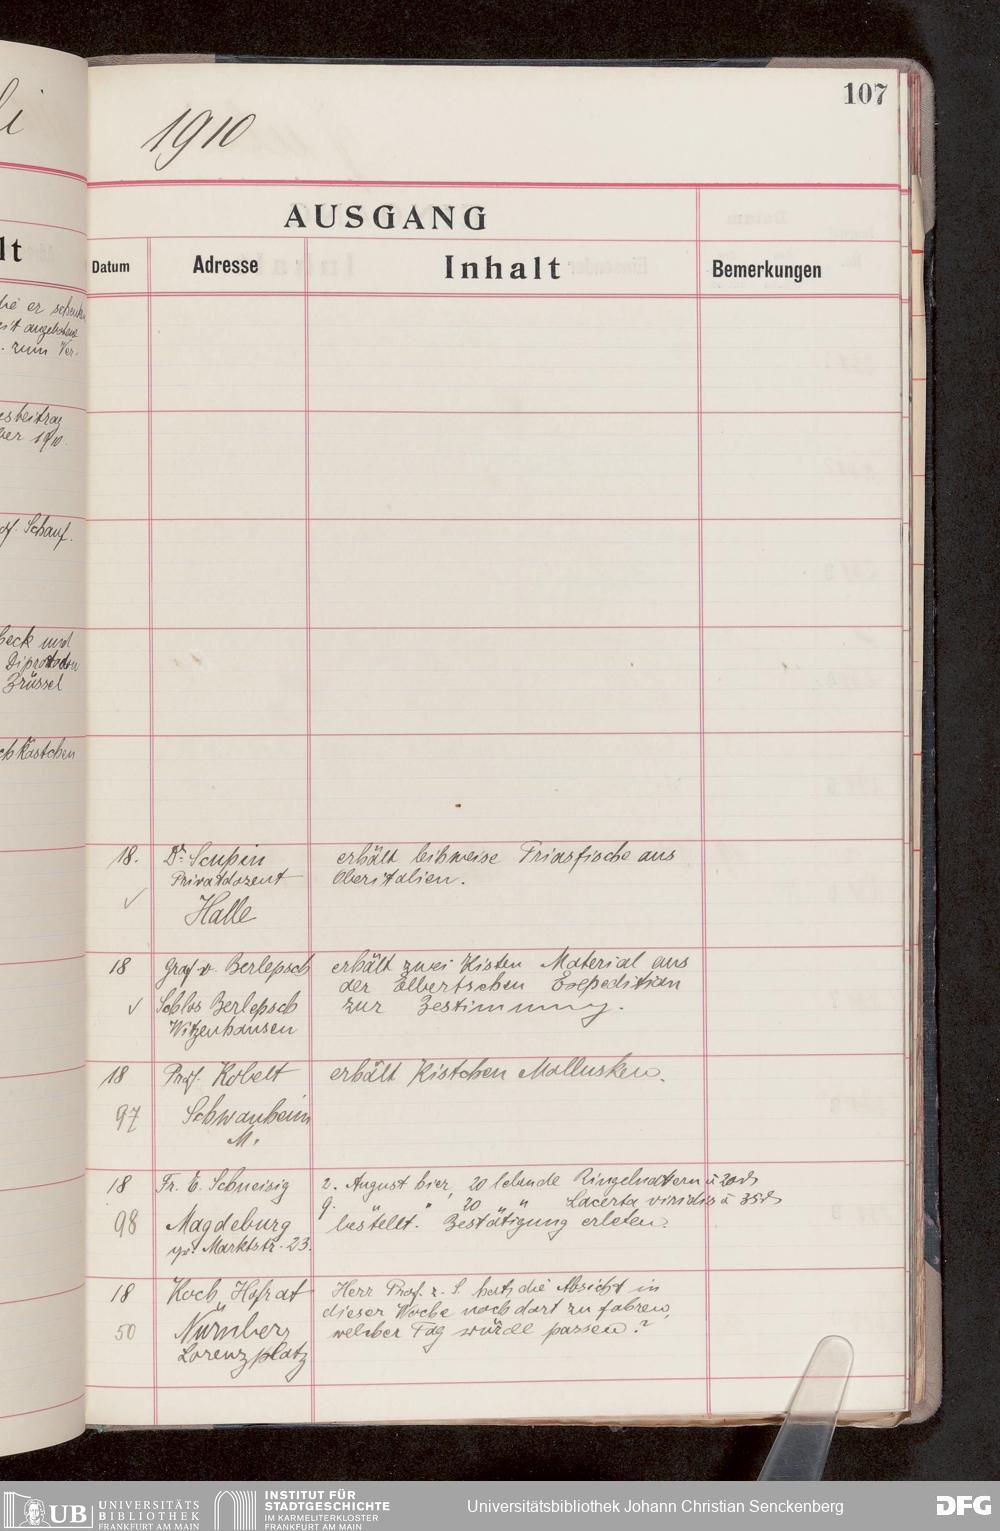 107
1910
AUSGANG
Datum Adresse Inhalt Bemerkungen
lt
er schenkt
angebotene
zum Ver-
beitrag
1910.
Schauf.
beck und
Diprotodon
Brüssel
Kästchen
18. Dr. Scupin erhält leihweise Triasfische aus
Privatdozent Oberitalien.
Halle
18 Graf v. Berlepsch erhält zwei Kisten Material aus
der Elbertschen Expedition
Schlos Berlepsch zur Bestimmung.
Witzenhausen
18 Prof. Kobelt erhält Kistchen Mollusken.
97 Schwanheim
M.
18 Fr. E. Schneisig 2. August hier, 20 lebende Ringelnattern à 20
9. " 20 " Lacerta viridis à 35
98 Magdeburg bestellt. Bestätigung erbeten.
gr. Marktstr. 23.
18 Koch, Hofrat Herr Prof. z. S. hat die Absicht in
dieser Woche noch dort zu fahren,
50 Nürnberg welcher Tag würde passen?
Lorenzplatz
UB UNIVERSITÄTS
BIBLIOTHEK
FRANKFURT AM MAIN
INSTITUT FÜR
STADTGESCHICHTE
IM KARMELITERKLOSTER
FRANKFURT AM MAIN
Universitätsbibliothek Johann Christian Senckenberg
DFG